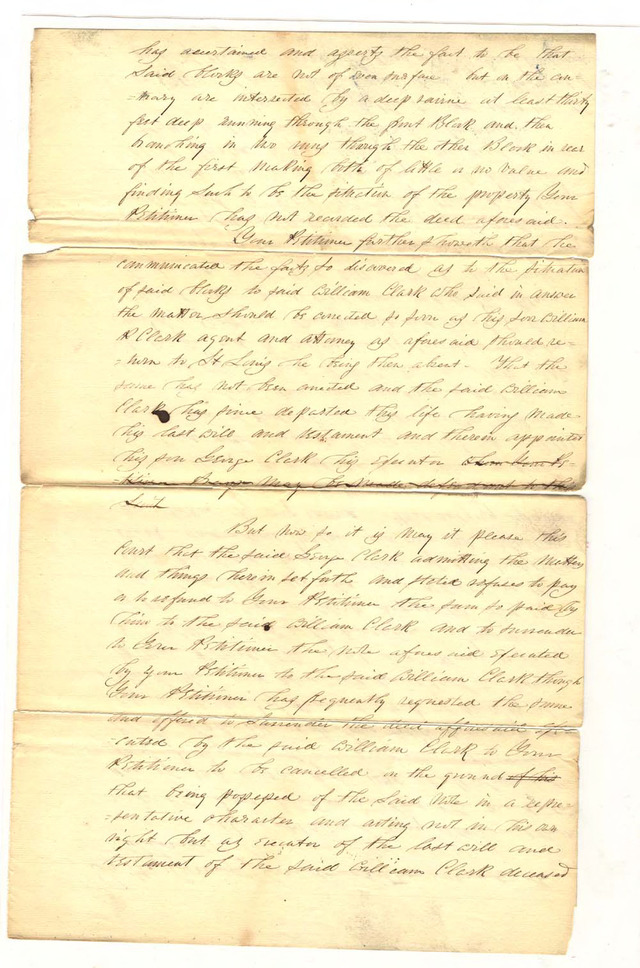 has ascertained and asserts the fact to be that
said Blocks are not of even surface but on the con=
=trary are intersected by a deep ravine at least thirty
feet deep running through the front Block and then
branching in two runs through the other Block in rear
of the first making both of little or no value and
finding such to be the situation of the property Your
Petitioner has not recorded the deed aforesaid.
Your Petitioner further showeth that he
communicated the facts so discovered as to the situation
of said Blocks to said William Clark who said in answer
the matter should be corrected so soon as his son William
P Clark agent and attorney as aforesaid should re=
=turn to St Louis he being then absent. That the
same has not been corrected and the said William
Clark has since departed this life having made
his last will and testament and therein appointed
his son George Clark his executor when Your Pe=
=titioner may be made to the
Such
But now so it is may it please this
Court that the said George Clark admitting the matters
and things herein set forth and stated refuses to pay
or to refund to Your Petitioner the sum so paid by
him to the said William Clark and to surrender
to Your Petitioner the note aforesaid executed
by your Petitioner to the said William Clark though
Your Petitioner has frequently requested the same
and offered to surrender the deed afforesaid exe=
=cuted by the said William Clark to Your
Petitioner to be cancelled on the ground of his
that being possessed of the said note in a repre=
=sentative character and acting not in his own
right but as executor of the last will and
testament of the said William Clark deceased